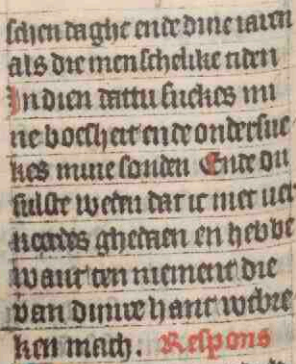 schen daghe ende dine iaren
als die menschelike tiden
In dien dattu suckes mi
ne bosheit ende ondersue
kes mine sonden Ende du
sulste weten dat ic niet uel
keerdes ghedaen en hebbe
want ten niement die
van dinre hant webre
ken mach. Respons